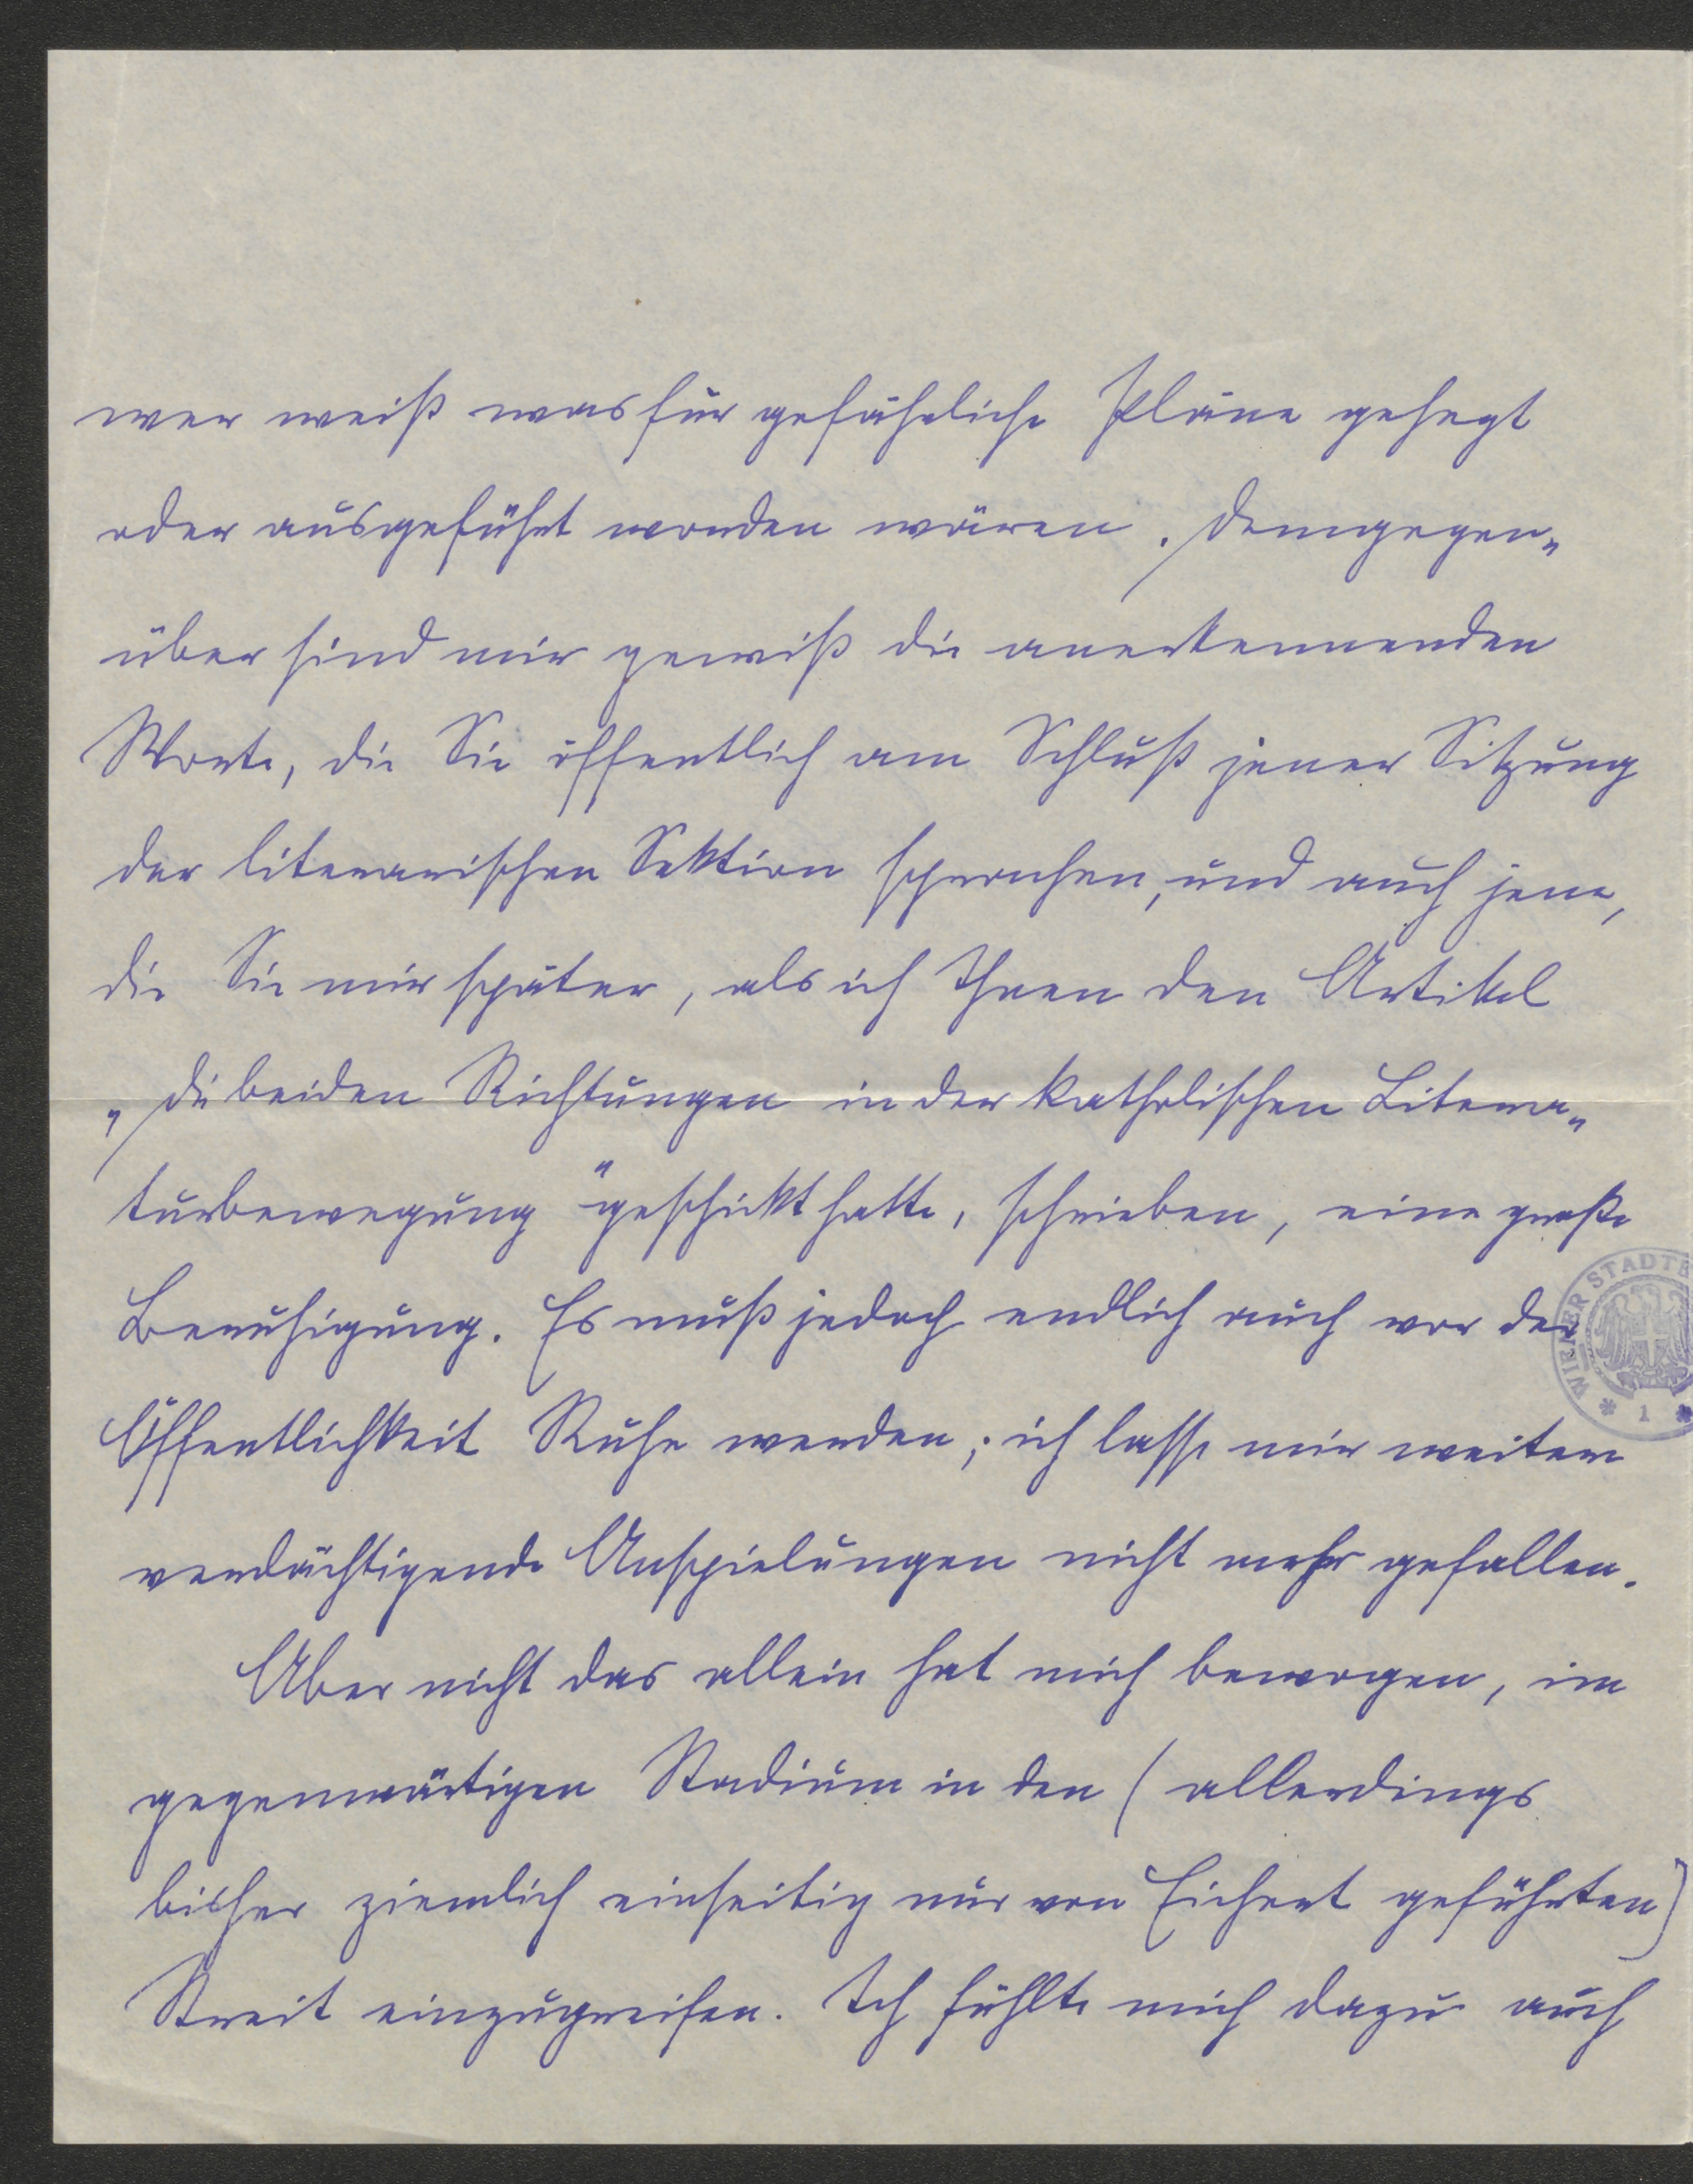 wer weiß was für gefährliche Pläne gehegt
oder ausgeführt worden wären. Demgegen„
über sind mir gewiß die anerkennenden
Worte, die Sie öffentlich am Schluß jener Sitzung
der literarischen Sektion sprachen, und auch jene,
die Sie mir später, als ich Ihnen den Artikel
„Die beiden Richtungen in der katholischen Litera„
turbewegung" geschickt hatte, schrieben, eine große
Beruhigung. Es muß jedoch endlich auch vor der
Öffentlichkeit Ruhe werden; ich lasse mir weitere
verdächtigende Anspielungen nicht mehr gefallen.
Aber nicht das allein hat mich bewogen, im
gegenwärtigen Stadium in den (allerdings
bisher ziemlich einseitig nur von Eichert geführten)
Streit einzugreifen. Ich fühlte mich dazu auch
WIENER STADTB
* 1 *